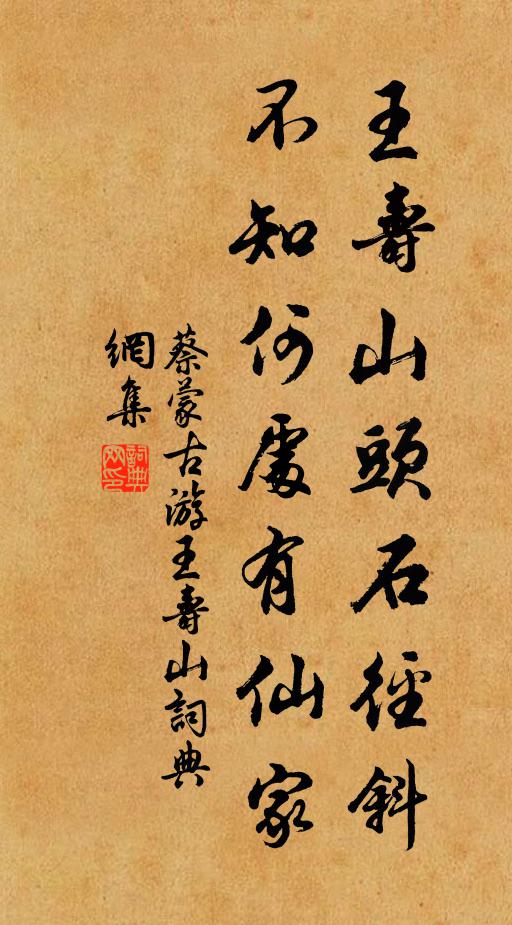 王壽山頭石徑斜
不知何處有仙家
蔡蒙古游王壽山詞典
網集
詞典
网印